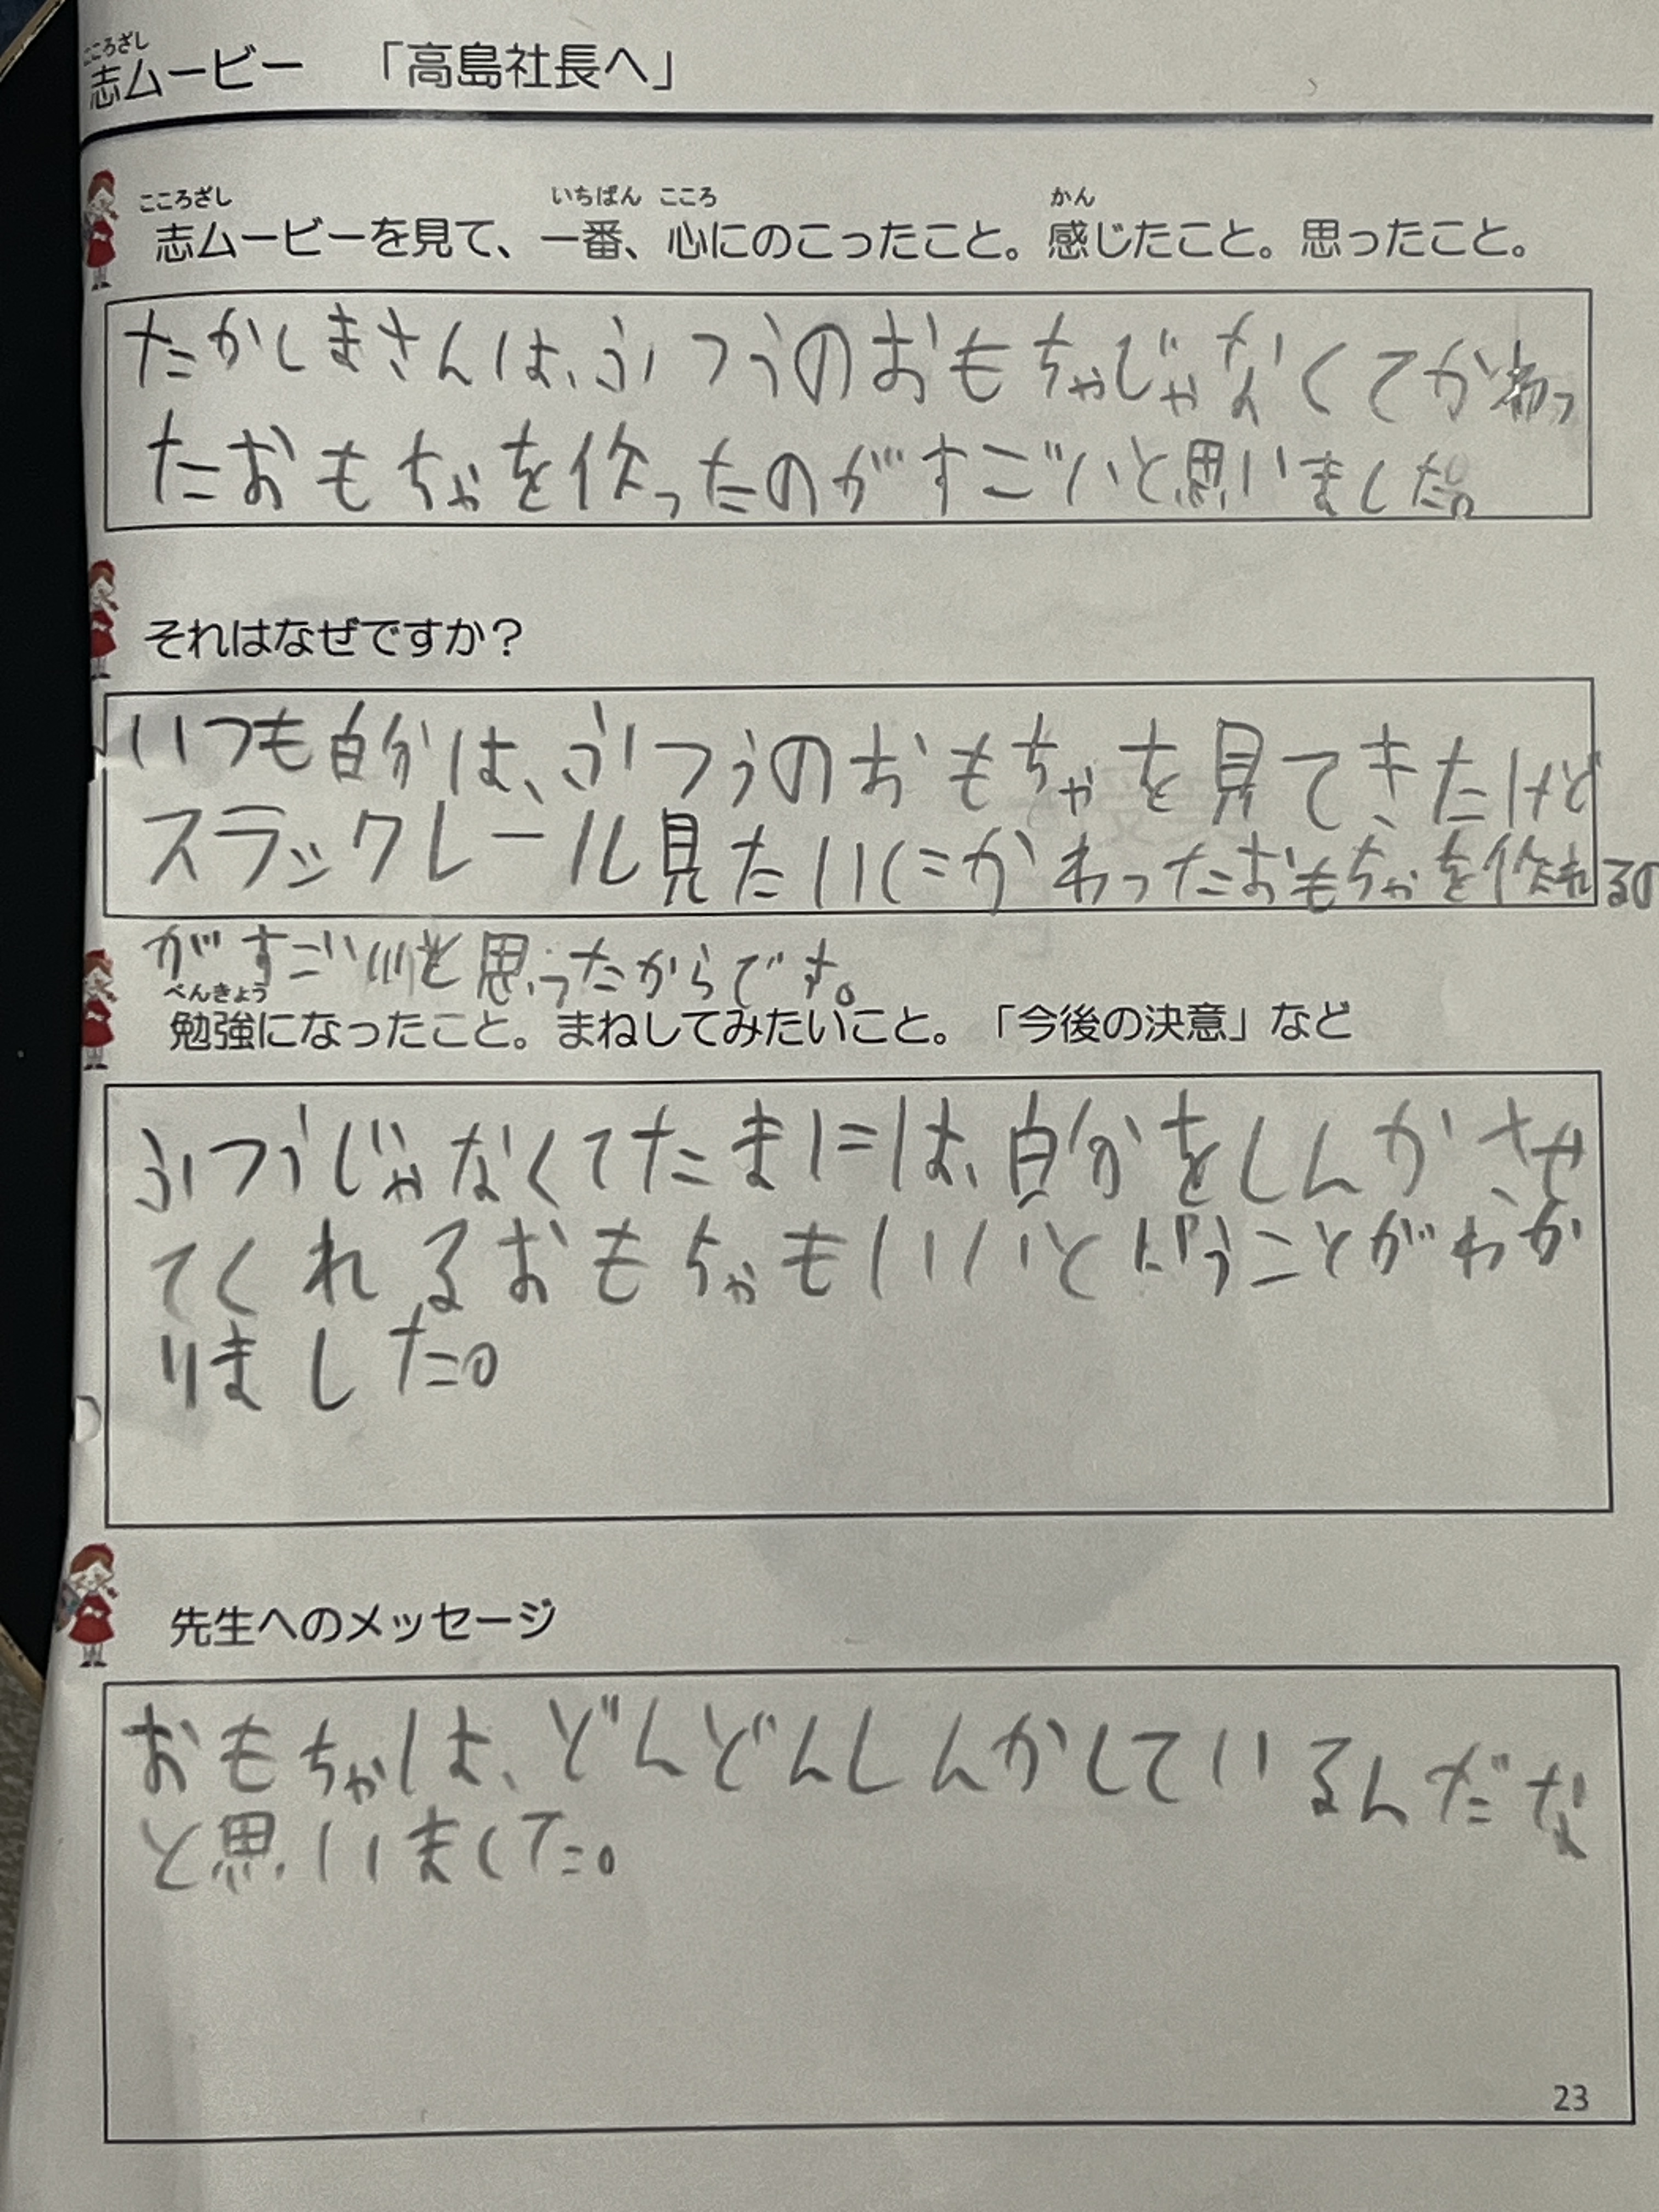 こころざし
志ムービー 「高島社長へ」
こころざし いちばん こころ かん
志ムービーを見て、一番、心にのこったこと。感じたこと。思ったこと。
たかしまさんは、ふつうのおもちゃじゃなくてかわっ
たおもちゃを作ったのがすごいと思いました。
それはなぜですか？
いつも自分は、ふつうのおもちゃを見てきたけど
スラックレール見たいにかわったおもちゃを作れるの
がすごいと思ったからです。
べんきょう
勉強になったこと。まねしてみたいこと。「今後の決意」など
ふつうじゃなくてたまには、自分をしんかさせ
てくれるおもちゃもいいということがわか
りました。
先生へのメッセージ
おもちゃは、どんどんしんかしているんだな
と思いました。
23